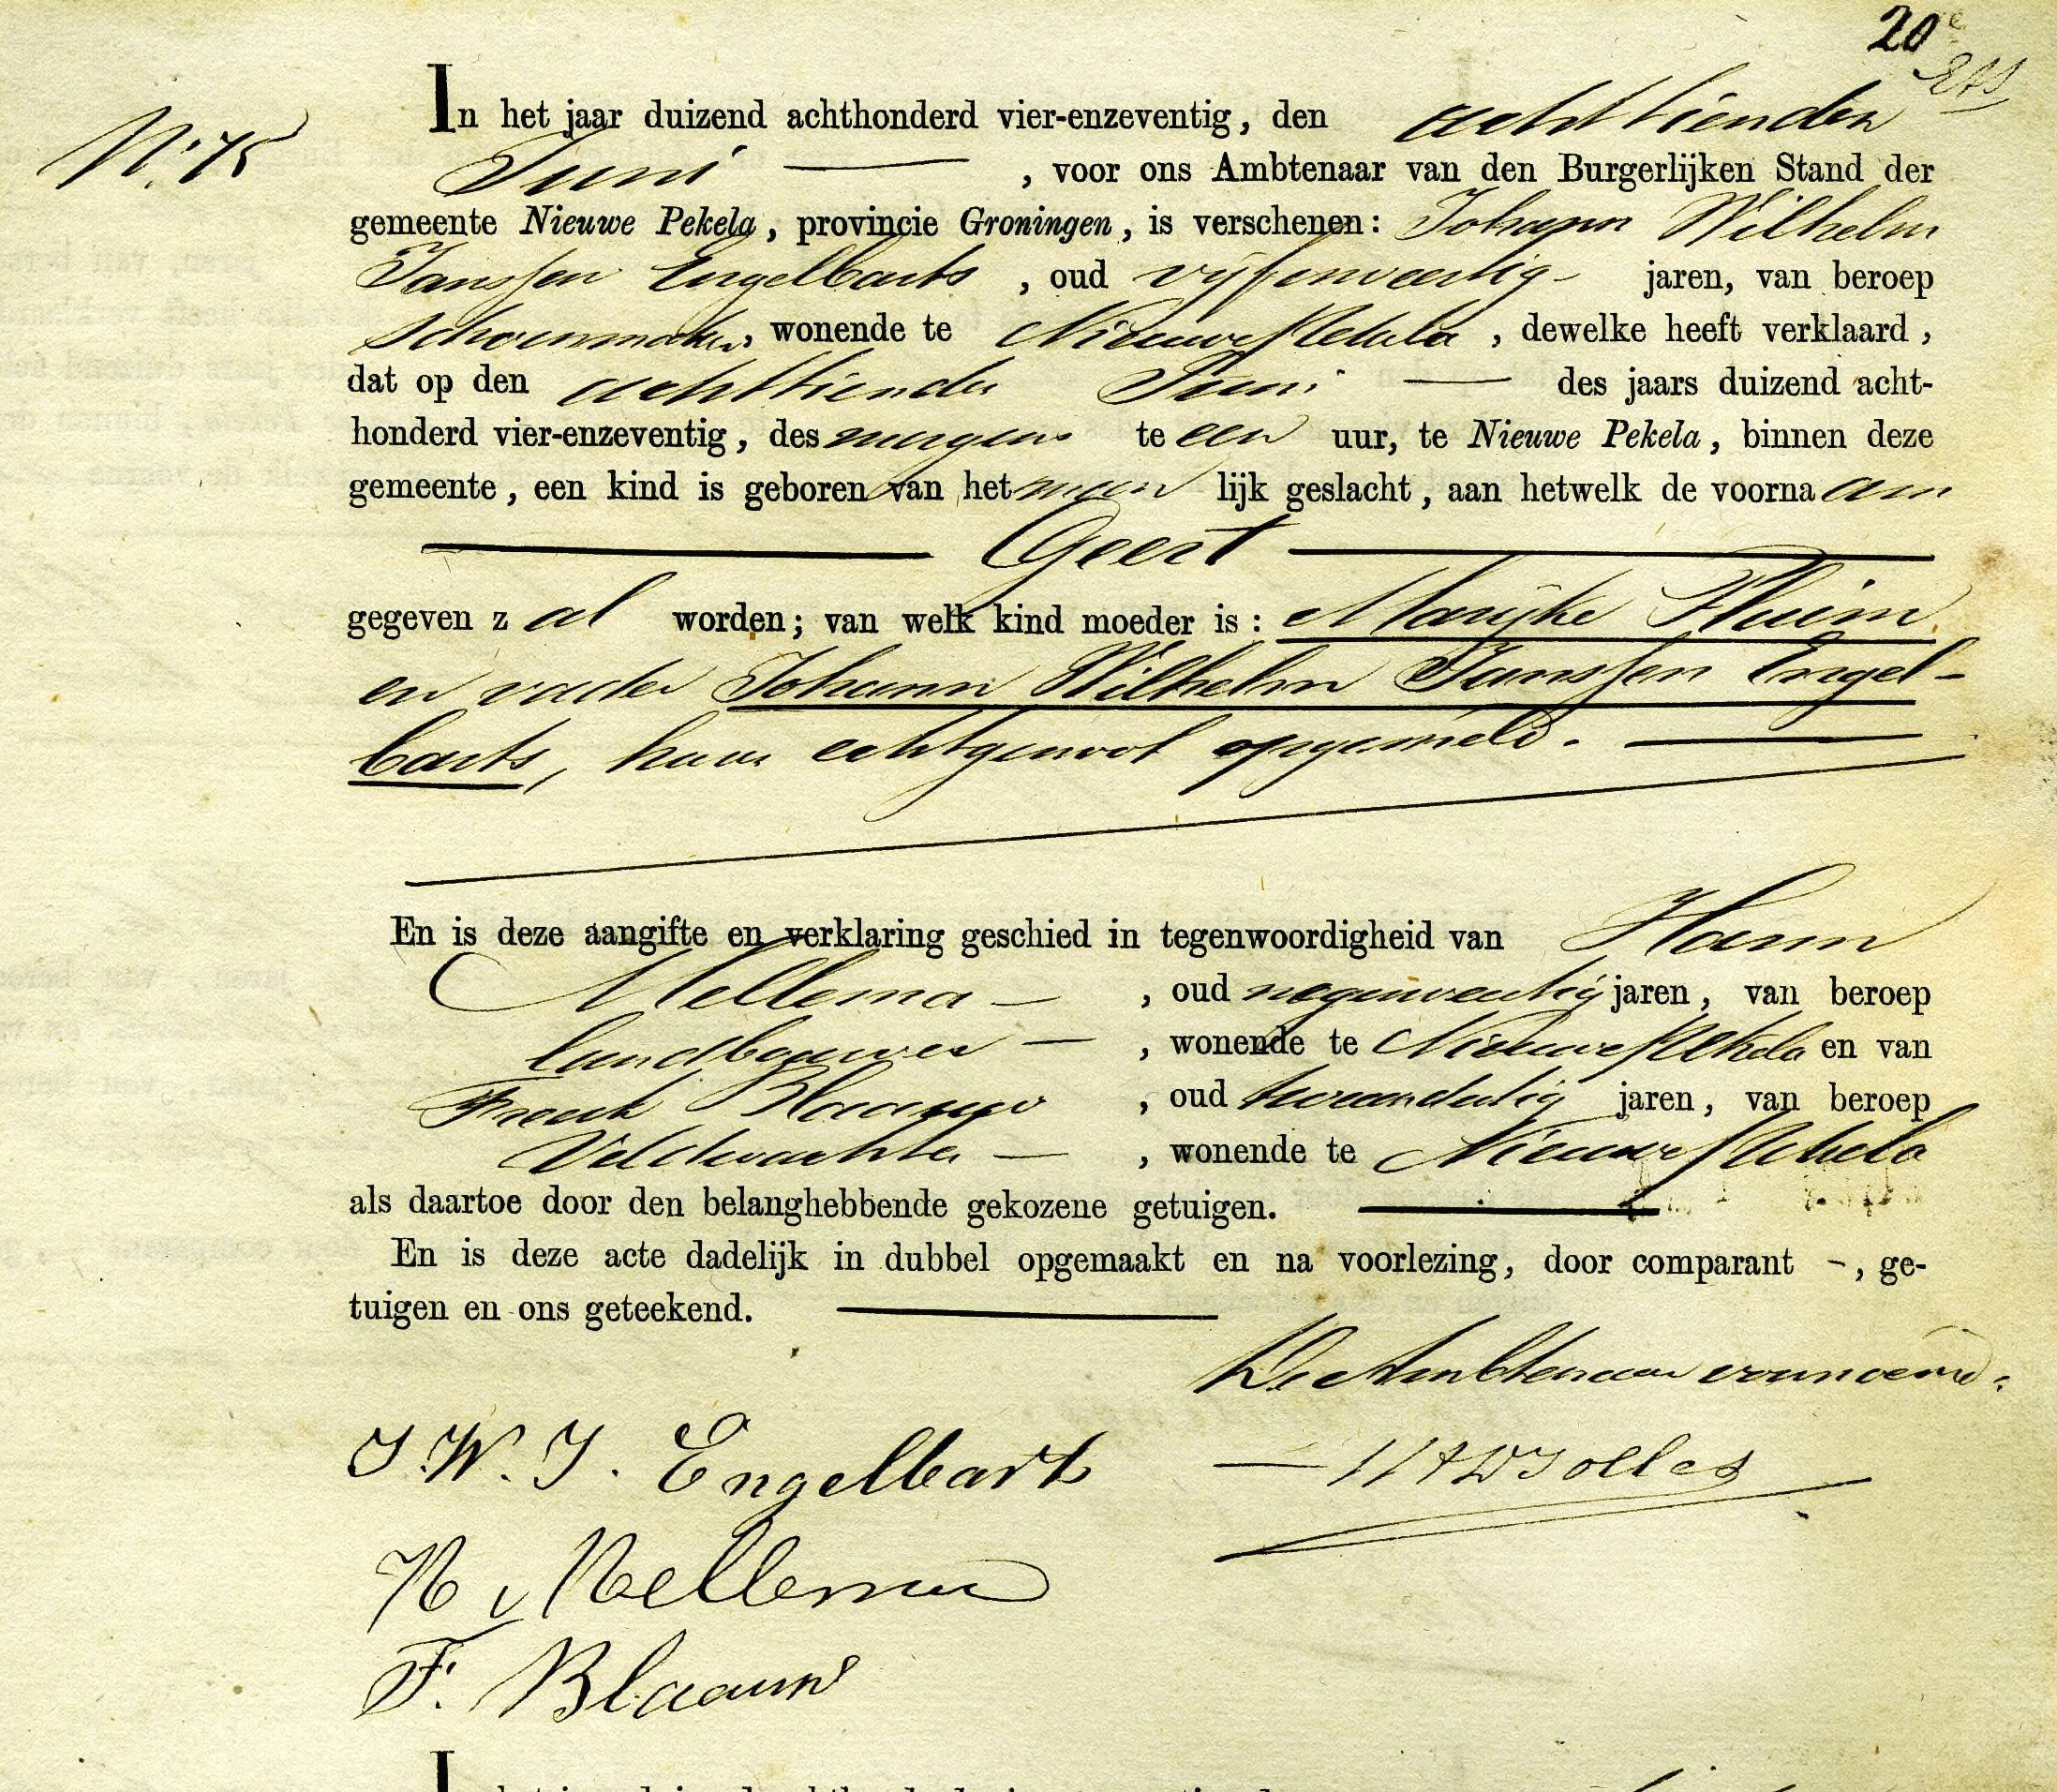 20e
N.º 75
In het jaar duizend achthonderd vier-enzeventig, den achttienden
Juni —, voor ons Ambtenaar van den Burgerlijken Stand der
gemeente Nieuwe Pekela, provincie Groningen, is verschenen: Johann Wilhelm
Janssen Engelbarts, oud vijfenveertig jaren, van beroep
schoenmaker, wonende te Nieuwe Pekela, dewelke heeft verklaard,
dat op den achttienden Juni — des jaars duizend acht-
honderd vier-enzeventig, des morgens te een uur, te Nieuwe Pekela, binnen deze
gemeente, een kind is geboren van het manlijk geslacht, aan hetwelk de voornaam
Geert
gegeven zal worden; van welk kind moeder is: Marijke Thuim
en vader Johann Wilhelm Janssen Engel-
barts, haar echtgenoot opgemeld.
En is deze aangifte en verklaring geschied in tegenwoordigheid van Harm
Mellema —, oud negenveertig jaren, van beroep
landbouwer —, wonende te Nieuwe Pekela en van
Freerk Blaauw, oud tweeendertig jaren, van beroep
Veldwachter —, wonende te Nieuwe Pekela
als daartoe door den belanghebbende gekozene getuigen.
En is deze acte dadelijk in dubbel opgemaakt en na voorlezing, door comparant -, ge-
tuigen en ons geteekend.
De Ambtenaar voornoemd.
J. W. J. Engelbarts
Mellema
F. Blaauw